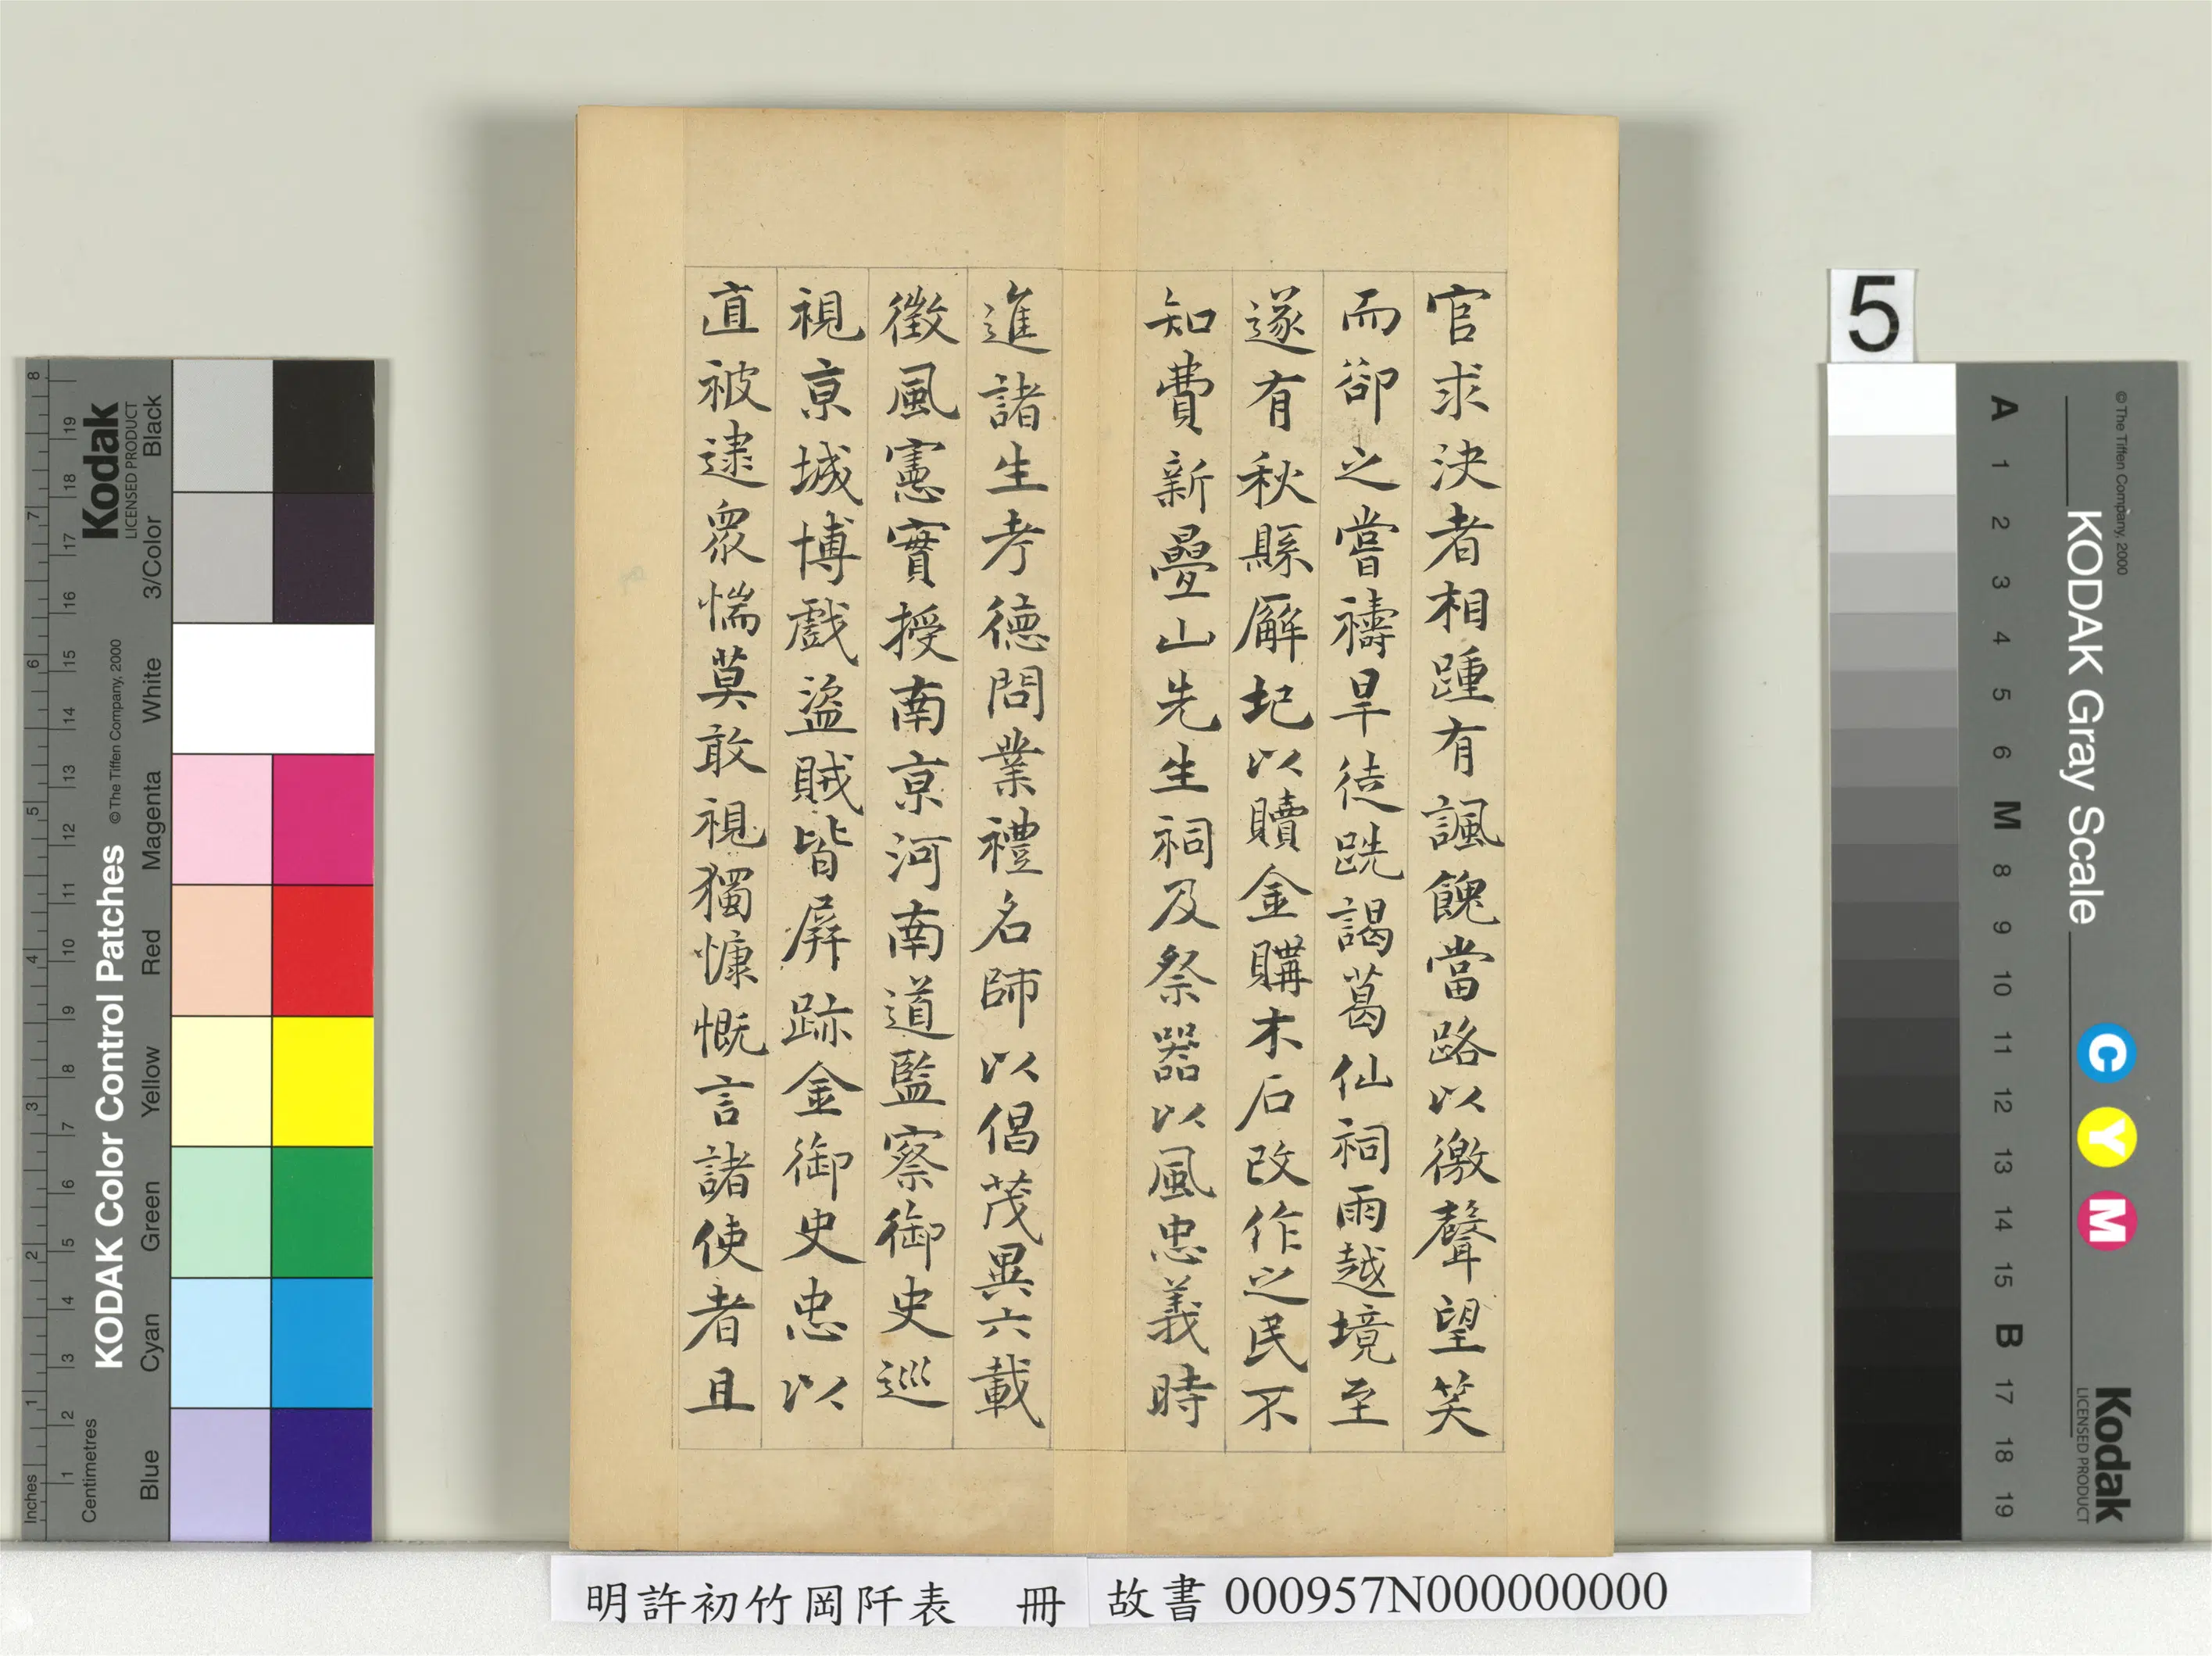 官求決者相踵有諷餽當路以徼聲望笑
而卻之嘗禱旱徒跣謁葛仙祠雨越境至
遂有秋縣廨圮以贖金購木石改作之民不
知費新疊山先生祠及祭器以風忠義時
進諸生考德問業禮名師以倡茂異六載
徵風憲實授南京河南道監察御史巡
視京城博戲盜賊皆屏跡金御史忠以
直被逮眾惴莫敢視獨慷慨言諸使者且
明許初竹岡阡表 冊
故書 000957N000000000
5
KODAK Color Control Patches
© The Tiffen Company, 2000
Kodak
LICENSED PRODUCT
Inches
1 2 3 4 5 6 7 8
Centimetres
1 2 3 4 5 6 7 8 9 10 11 12 13 14 15 16 17 18 19
Blue Cyan Green Yellow Red Magenta White 3/Color Black
KODAK Gray Scale
© The Tiffen Company, 2000
Kodak
LICENSED PRODUCT
C Y M
A 1 2 3 4 5 6 M 8 9 10 11 12 13 14 15 B 17 18 19